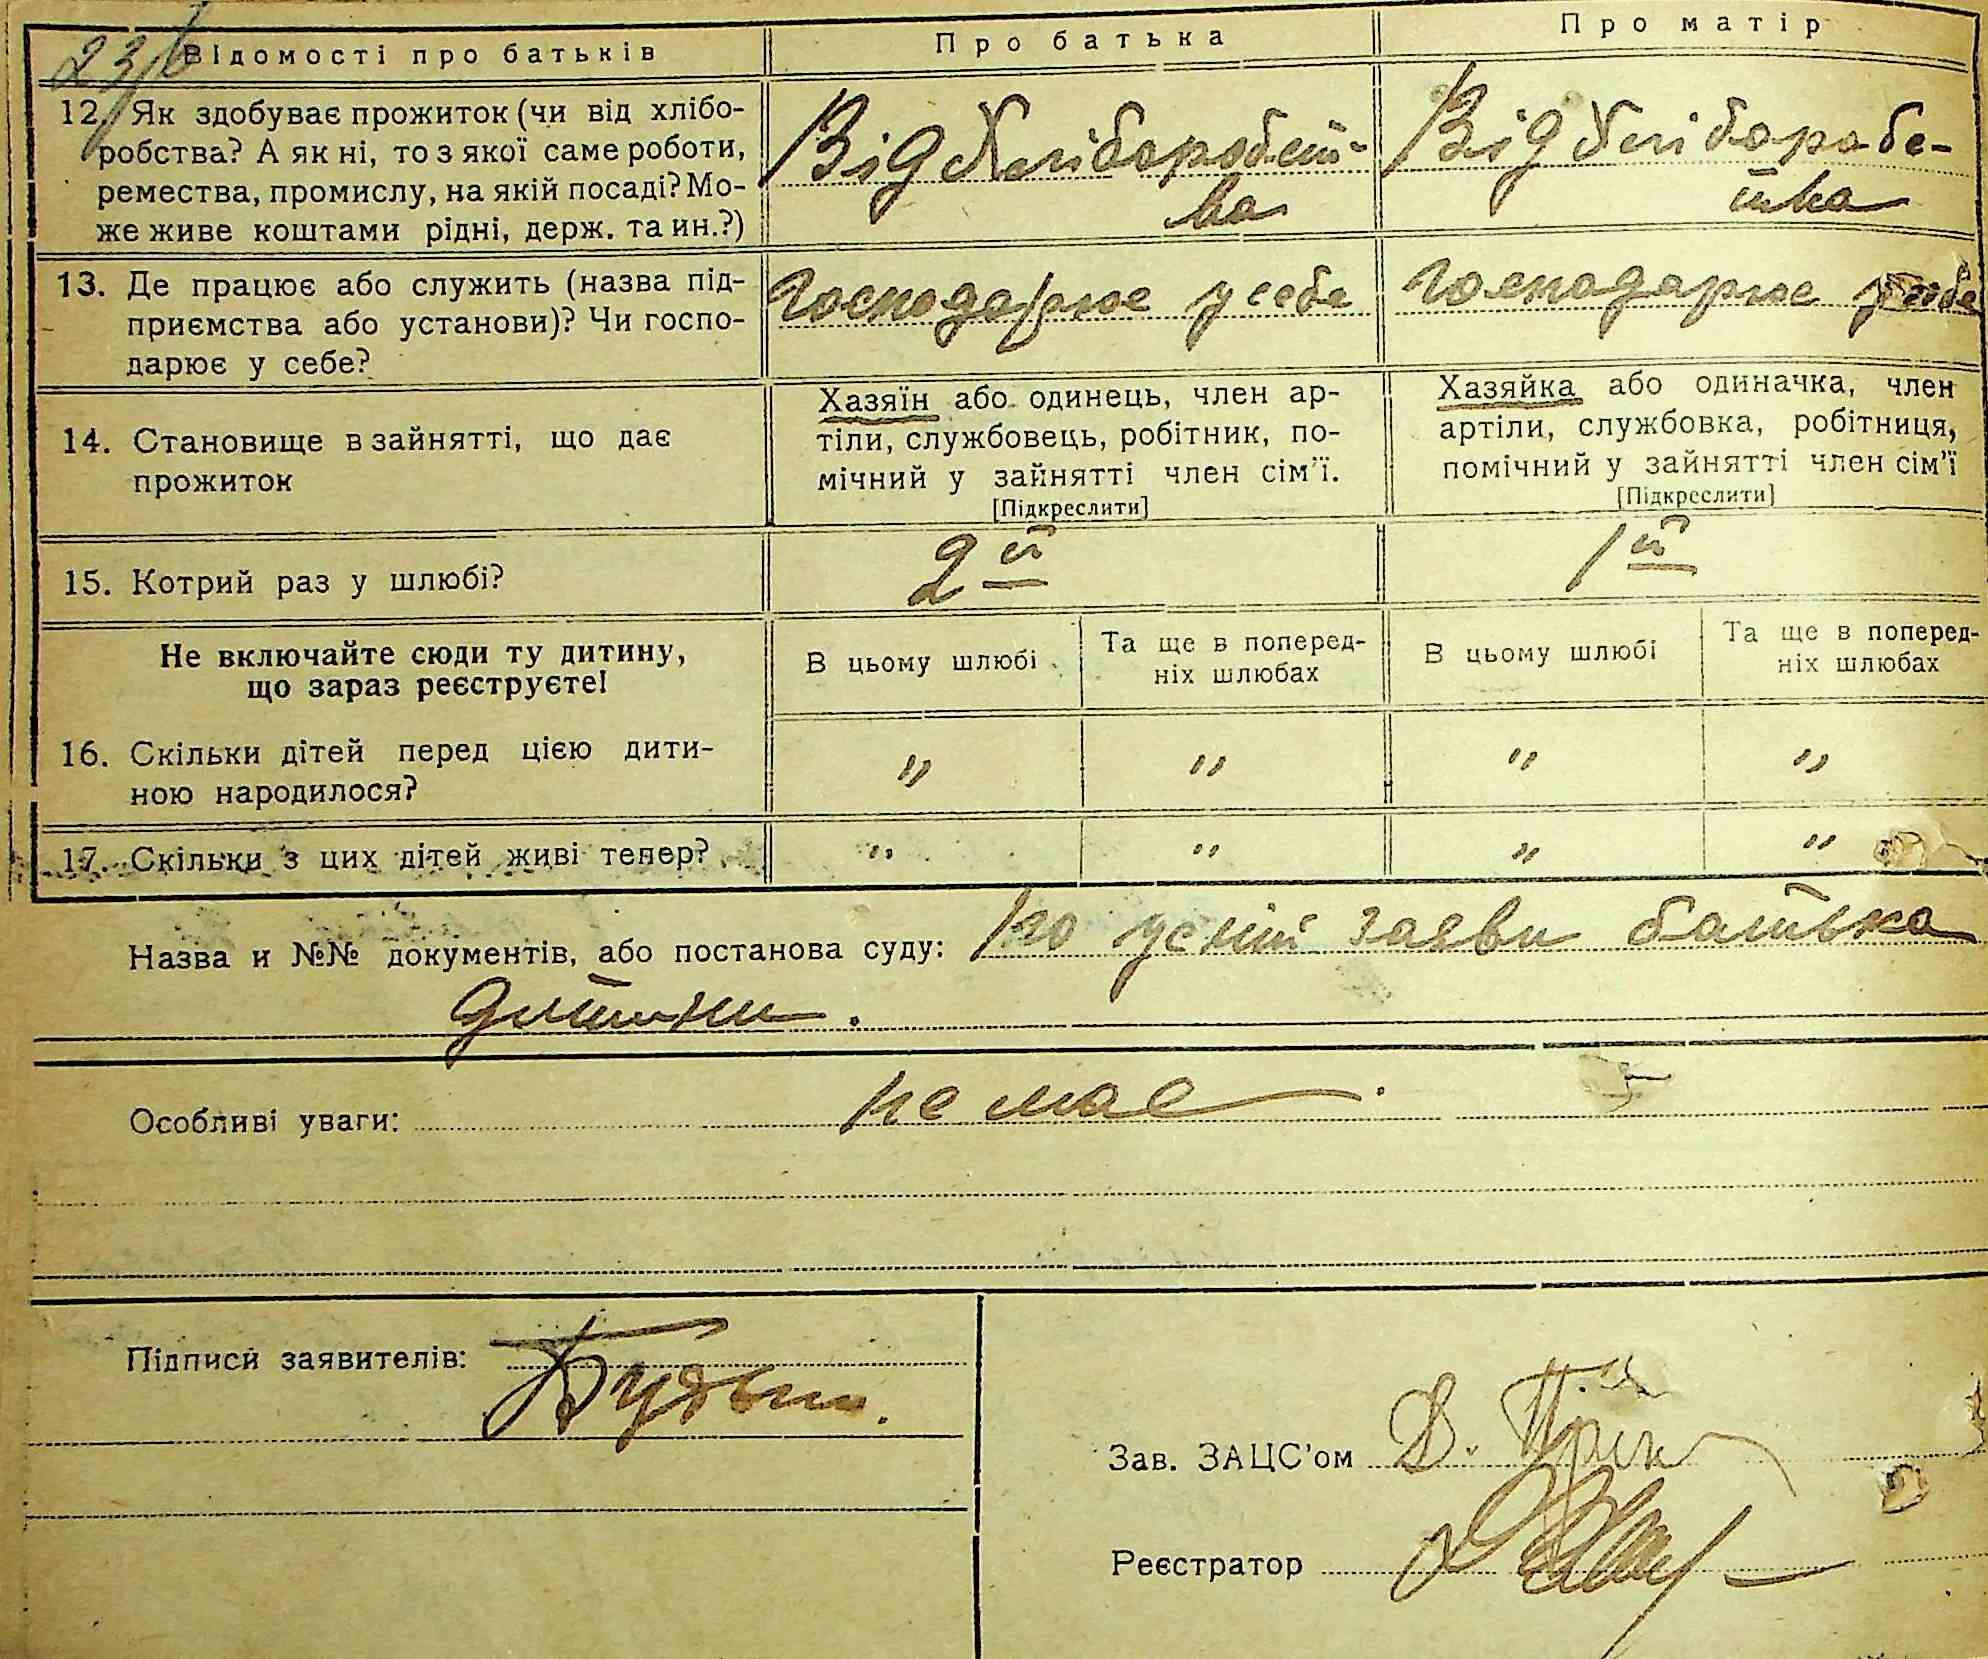 23
Відомості про батьків
Про батька
Про матір
12. Як здобуває прожиток (чи від хлібо-
робства? А як ні, то з якої саме роботи,
ремества, промислу, на якій посаді? Мо-
же живе коштами рідні, держ. та ин.?)
Від Хліборобст-
ва
Від Хліборобс-
тва
13. Де працює або служить (назва під-
приємства або установи)? Чи госпо-
дарює у себе?
Господарює у себе
Господарює у себе
14. Становище в зайнятті, що дає
прожиток
Хазяїн або одинець, член ар-
тіли, службовець, робітник, по-
мічний у зайнятті член сім'ї.
[Підкреслити]
Хазяйка або одиначка, член
артіли, службовка, робітниця,
помічний у зайнятті член сім'ї
[Підкреслити]
15. Котрий раз у шлюбі?
2й
1й
Не включайте сюди ту дитину,
що зараз реєструєте!
В цьому шлюбі
Та ще в поперед-
ніх шлюбах
В цьому шлюбі
Та ще в поперед-
ніх шлюбах
16. Скільки дітей перед цією дити-
ною народилося?
" " " "
17. Скільки з цих дітей живі тепер?
" " " "
Назва и №№ документів, або постанова суду: По усній заяви батька
дитини.
Особливі уваги: не має
Підписи заявителів:
Зав. ЗАЦС'ом Д.
Реєстратор